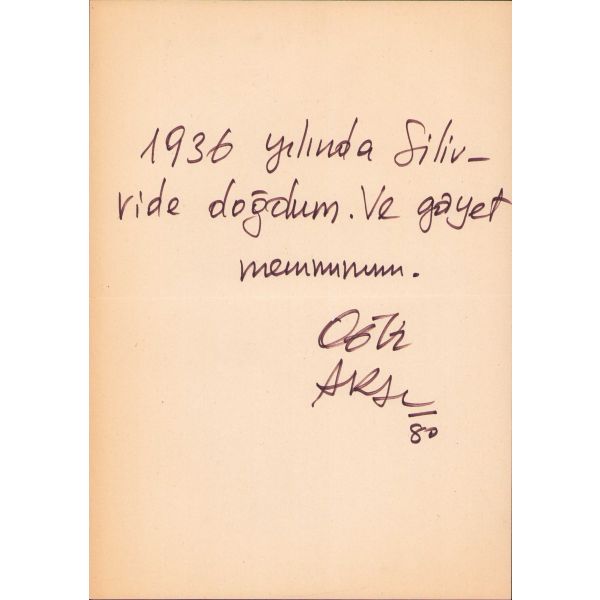 1936 yılında Siliv-
ride doğdum. Ve gayet
memnunum.
Oğuz
ARAL
/80